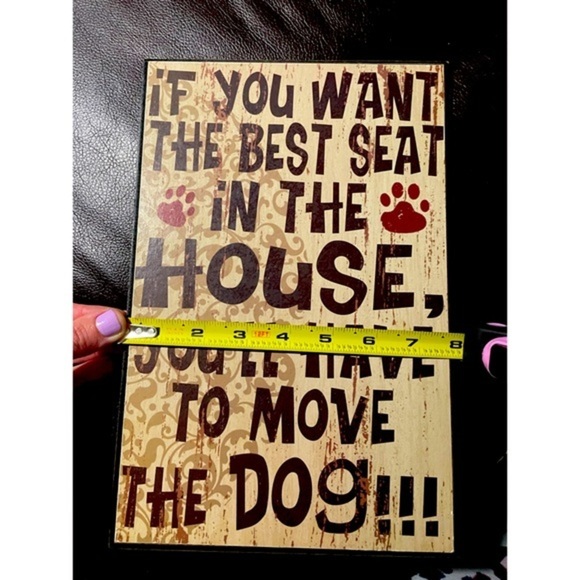 iF YOU WANT
THE BEST SEAT
iN THE
HOUSE,
2 3 1FT 4 5 6 7 8
YOU'LL HAVE
TO MOVE
THE DOG!!!